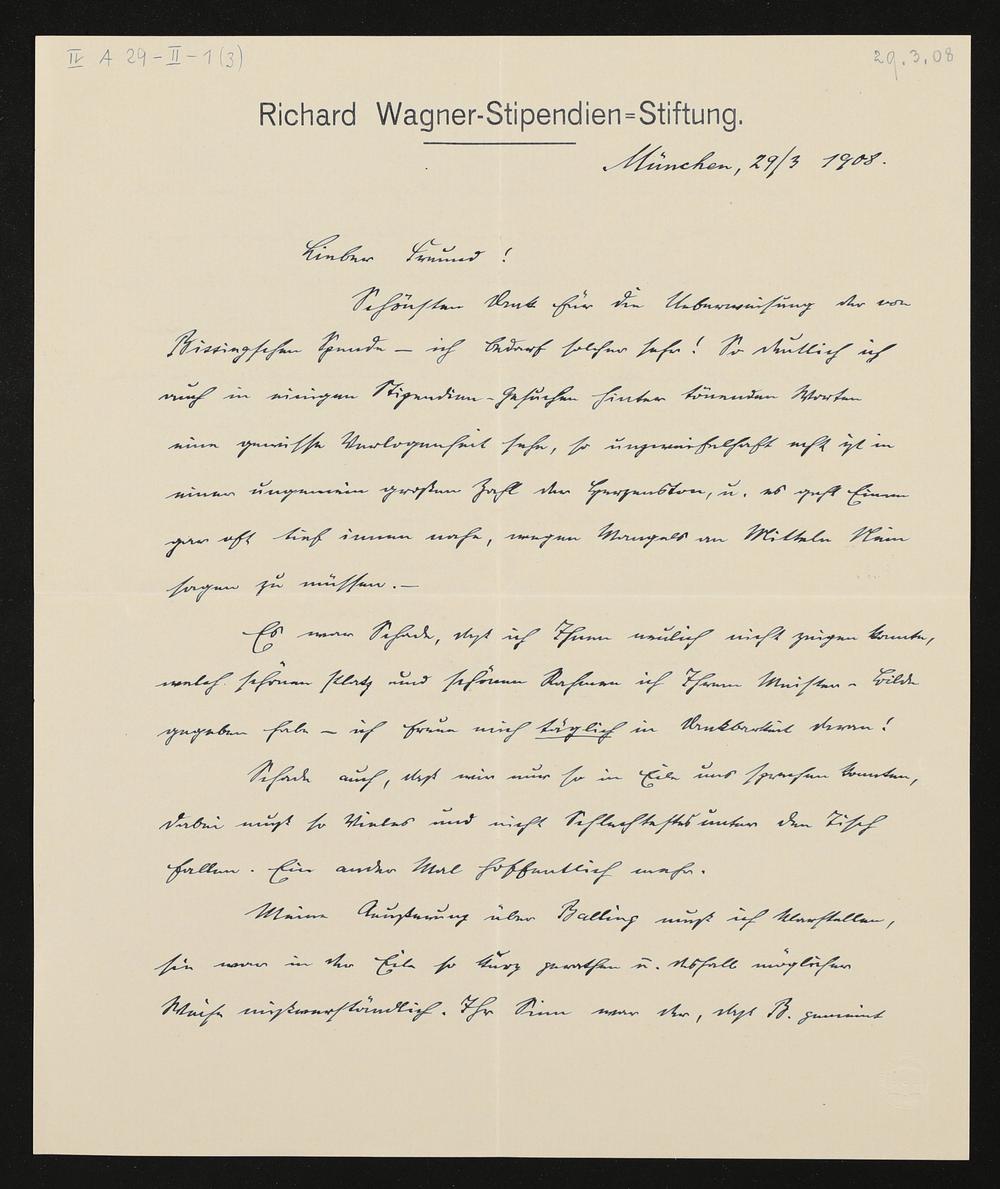 IV A 29-II-1(3)
29.3.08
Richard Wagner-Stipendien=Stiftung.
München, 29/3 1908.
Lieber Freund!
Schönsten Dank für die Ueberweisung der von
Bissingschen Spende — ich bedarf solcher sehr! So deutlich ich
auch in einigen Stipendien-Gesuchen hinter tönenden Worten
eine gewisse Verlogenheit sehe, so unzweifelhaft echt ist in
einer ungemein großen Zahl der Herzenston, u. es geht Einem
gar oft tief innen nahe, wegen Mangels an Mitteln Nein
sagen zu müssen.—
Es war Schade, daß ich Ihnen neulich nicht zeigen konnte,
welch schönen Platz und schönen Rahmen ich Ihrem Meister-Bilde
gegeben habe — ich freue mich täglich in Dankbarkeit daran!
Schade auch, daß wir nur so in Eile uns sprechen konnten,
dabei muß so Vieles und nicht Schlechtestes unter den Tisch
fallen. Ein ander Mal hoffentlich mehr.
Meine Aeußerung über Balling muß ich klarstellen,
sie war in der Eile so kurz gerathen u. deshalb möglicher
Weise mißverständlich. Ihr Sinn war der, daß B. gemeint